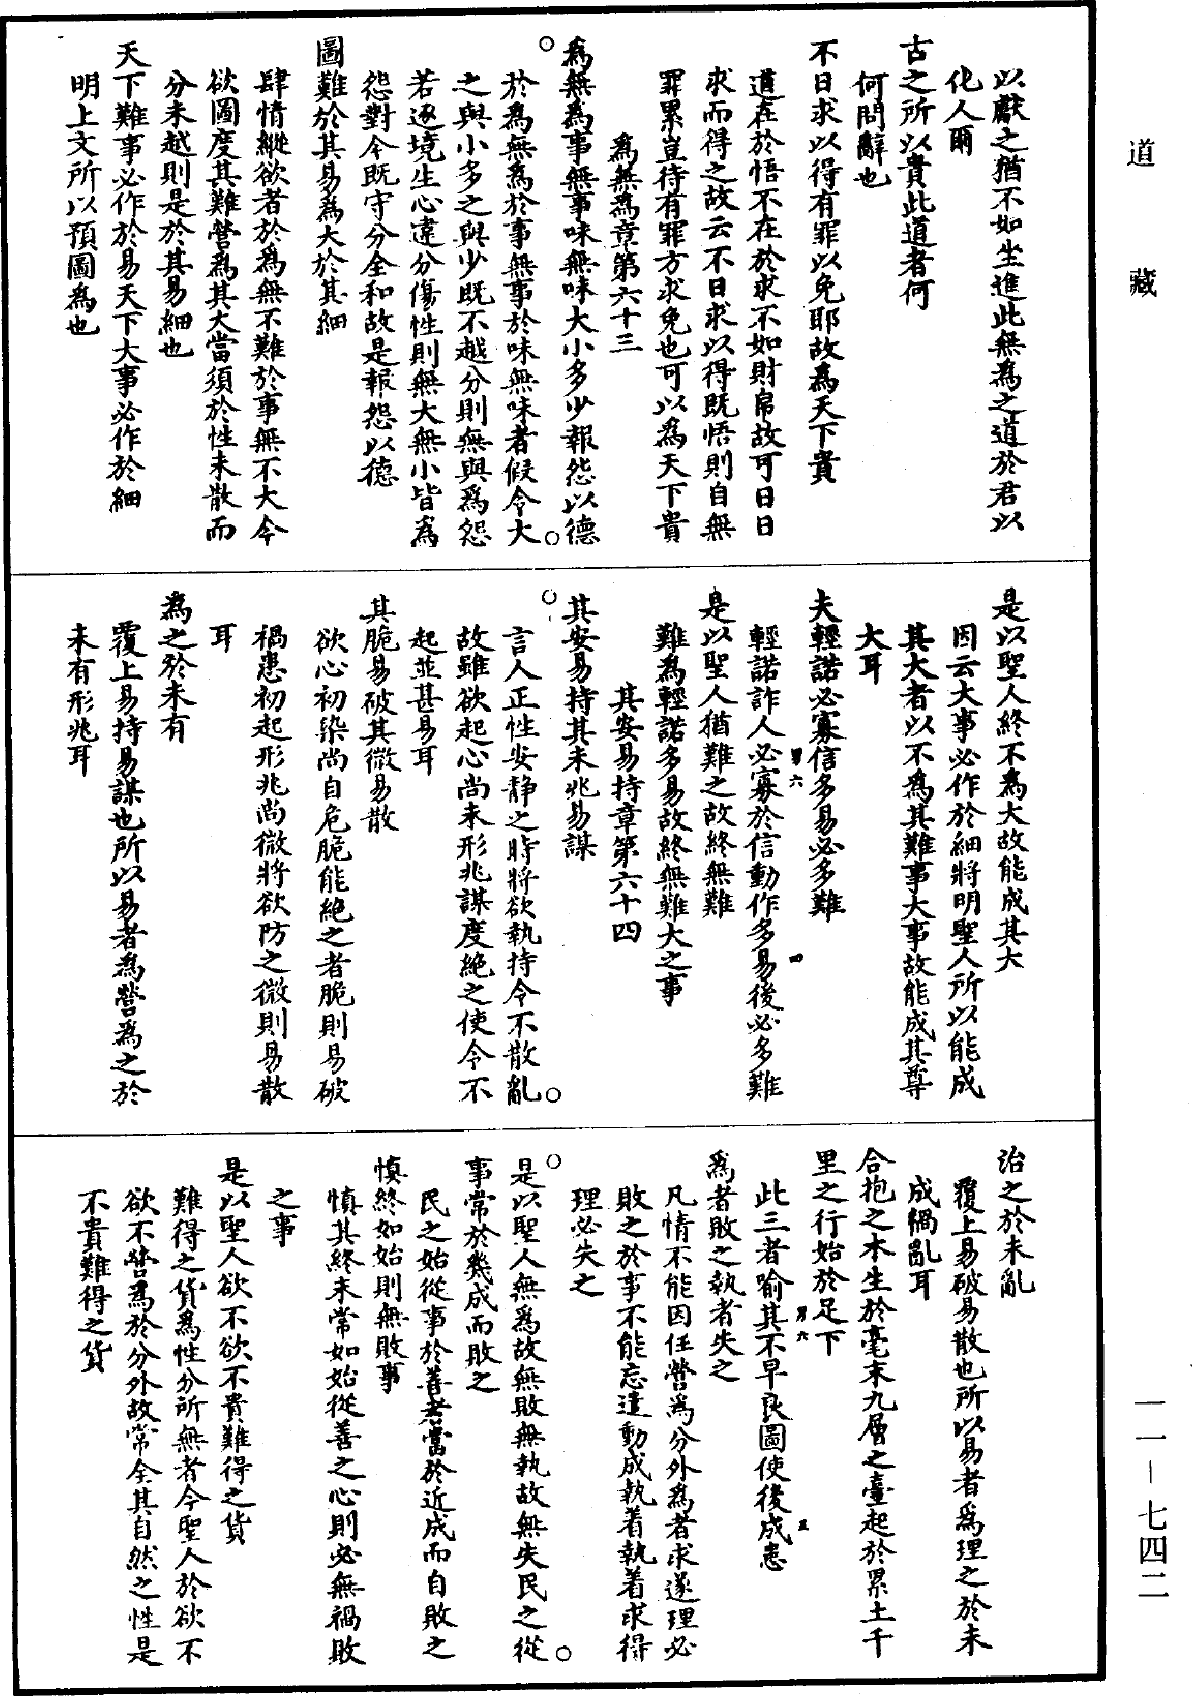 道藏
以獻之猶不如坐進此無為之道於君以
化人爾
古之所以貴此道者何
何問辭也
不日求以得有罪以免耶故為天下貴
道在於悟不在於求不如財帛故可日日
求而得之故云不日求以得既悟則自無
罪累豈待有罪方求免也可以為天下貴
為無為章第六十三
為無為事無事味無味大小多少報怨以德
於為無為於事無事於味無味者假令大
之與小多之與少既不越分則無與為怨
若逐境生心違分傷性則無大無小皆為
怨對今既守分全和故是報怨以德
圖難於其易為大於其細
肆情縱欲者於為無不難於事無不大今
欲圖度其難營為其大當須於性未散而
分未越則是於其易細也
天下難事必作於易天下大事必作於細
明上文所以預圖為也
是以聖人終不為大故能成其大
因云大事必作於細將明聖人所以能成
其大者以不為其難事大事故能成其尊
大耳
夫輕諾必寡信多易必多難
輕諾詐人必寡於信動作多易後必多難
是以聖人猶難之故終無難
難為輕諾多易故終無難大之事
其安易持章第六十四
其安易持其未兆易謀
言人正性安静之時將欲執持令不散亂
故雖欲起心尚未形兆謀度絶之使令不
起並甚易耳
其脆易破其微易散
欲心初染尚自危脆能絶之者脆則易破
禍患初起形兆尚微將欲防之微則易散
耳
為之於未有
覆上易持易謀也所以易者為營為之於
未有形兆耳
治之於未亂
覆上易破易散也所以易者為理之於未
成禍亂耳
合抱之木生於毫末九層之臺起於累土千
里之行始於足下
此三者喻其不早良圖使後成患
為者敗之執者失之
凡情不能因任營為分外為者求遂理必
敗之於事不能忘遣動成執着執着求得
理必失之
是以聖人無為故無敗無執故無失民之從
事常於幾成而敗之
民之始從事於善者當於近成而自敗之
慎終如始則無敗事
慎其終末常如始從善之心則必無禍敗
之事
是以聖人欲不欲不貴難得之貨
難得之貨為性分所無者今聖人於欲不
欲不營為於分外故常全其自然之性是
不貴難得之貨
一一－七四二